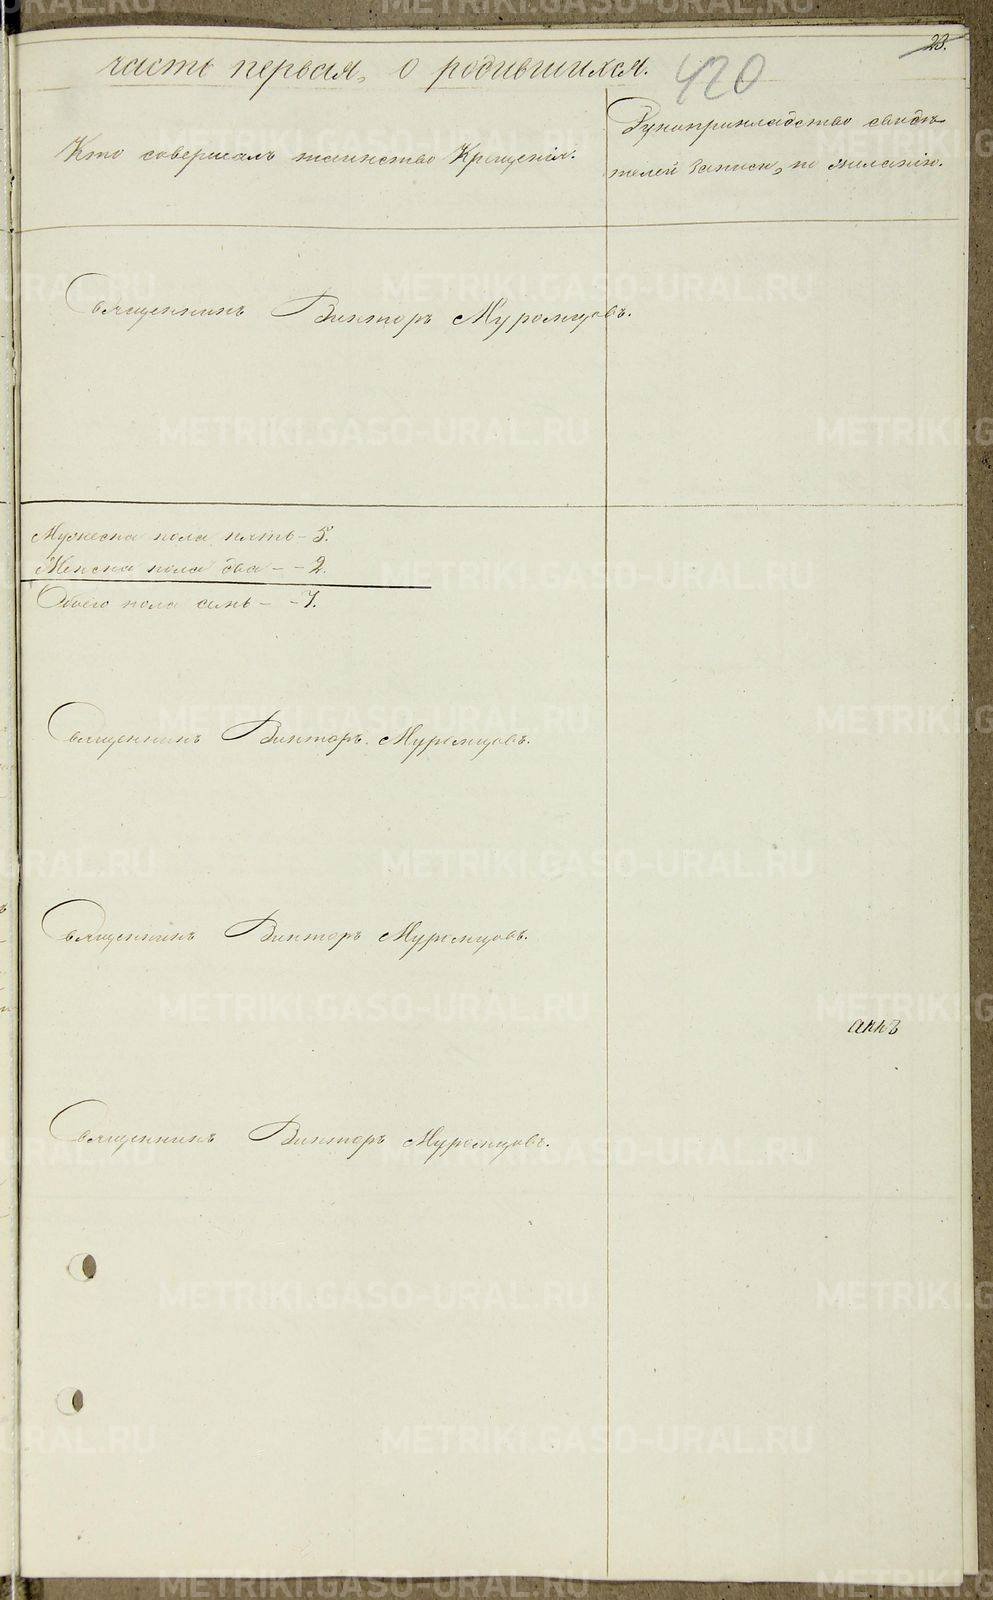 23.
часть первая, о родившихся.
420
Кто совершалъ таинство Крещенія.
Рукоприкладство свидѣ-
телей записи, по желанію.
Священникъ Викторъ Муромцовъ.
Мужеска пола пять - 5.
Женска пола два - - 2.
Обоего пола семь - - 7.
Священникъ Викторъ Муромцовъ.
Священникъ Викторъ Муромцовъ.
Священникъ Викторъ Муромцовъ.
METRIKI.GASO-URAL.RU